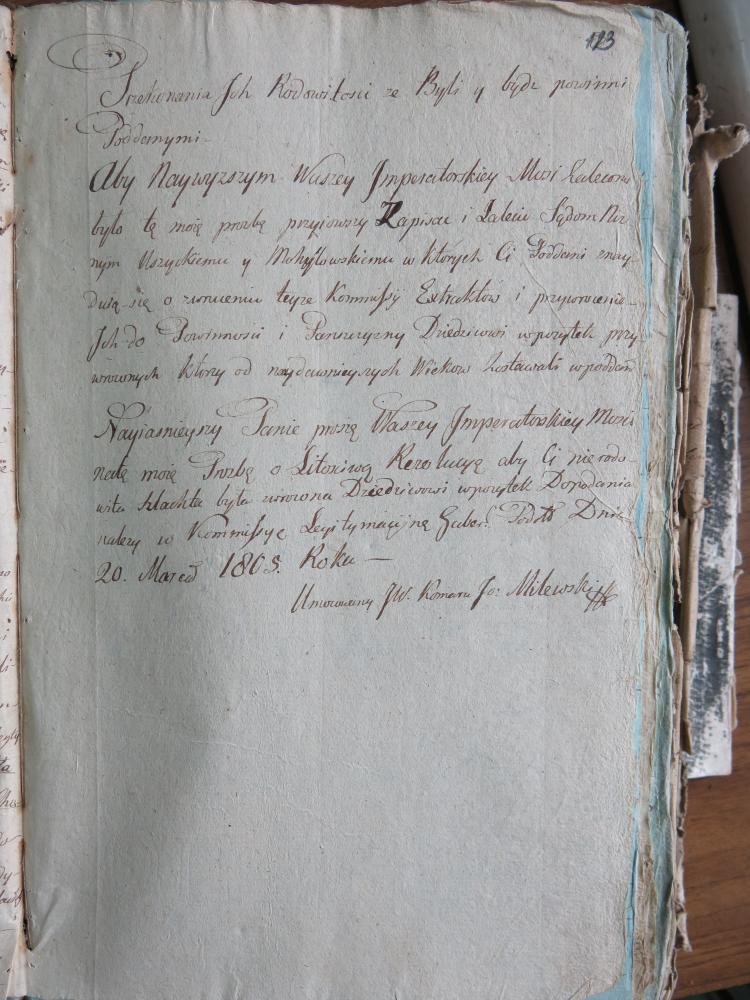 123
Przekonania Jch Rodowitości ze Byli y bydz powinni
Poddanymi
Aby Naywyzszym Waszey Jmperatorskiey Mosci zalecono
było tę moią prozbę przyiowszy Zapisac i Zalecic Sądom Niz
nym Uszyckiemu y Mohylowskiemu w ktorych Ci Poddani znay
duią się o zwruceniu teyze Kommissyi Extraktów i przywrocenie
Jch do Powinnosci i Panszczyzny Dziedzicowi w poczytek przy
wroconych ktorzy od naydawnieyszych Wiekow zostawali w poddań
Nayiasnieyszy Panie proszę Waszey Jmperatorskiey Mosci
natę moię Prozbę o Litosciwą Rezolucyę aby Ci nierodo
wita szlachta była zwrocona Dziedzicowi w poczytek Doxodania
nalezy w Kommissyę Legitymacyiną Guber: Podole Dnia
20. Marca 1805. Roku —
Umocowany JW. Komara Jo: Milewski